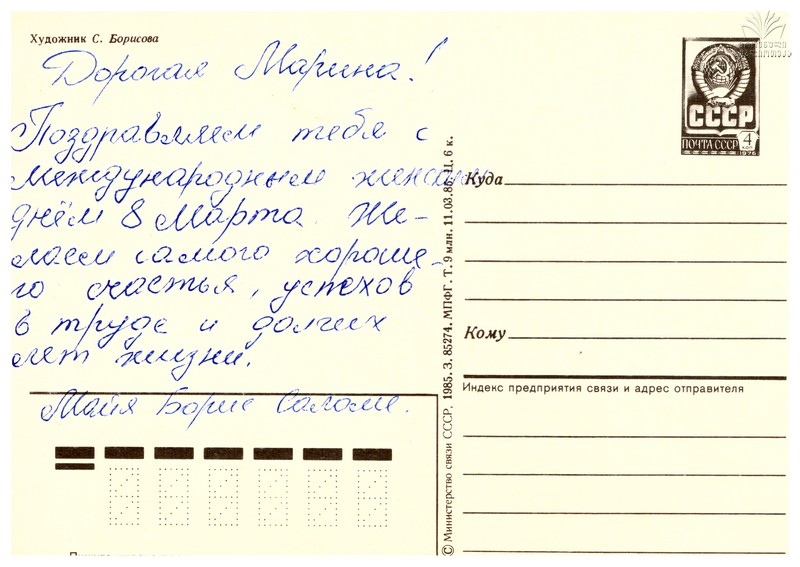 Художник С. Борисова
Дорогая Марина!
Поздравляем тебя с
международным женским
днём 8 Марта. Же-
лаем самого хороше-
го счастья, успехов
в труде и долгих
лет жизни.
Майя Борис Саломе.
© Министерство связи СССР. 1985. З. 85274. МПФГ. Т. 9 млн. 11.03.85. Ц. 6 к.
СССР
ПОЧТА СССР
4
КОП
1976
Куда
Кому
Индекс предприятия связи и адрес отправителя